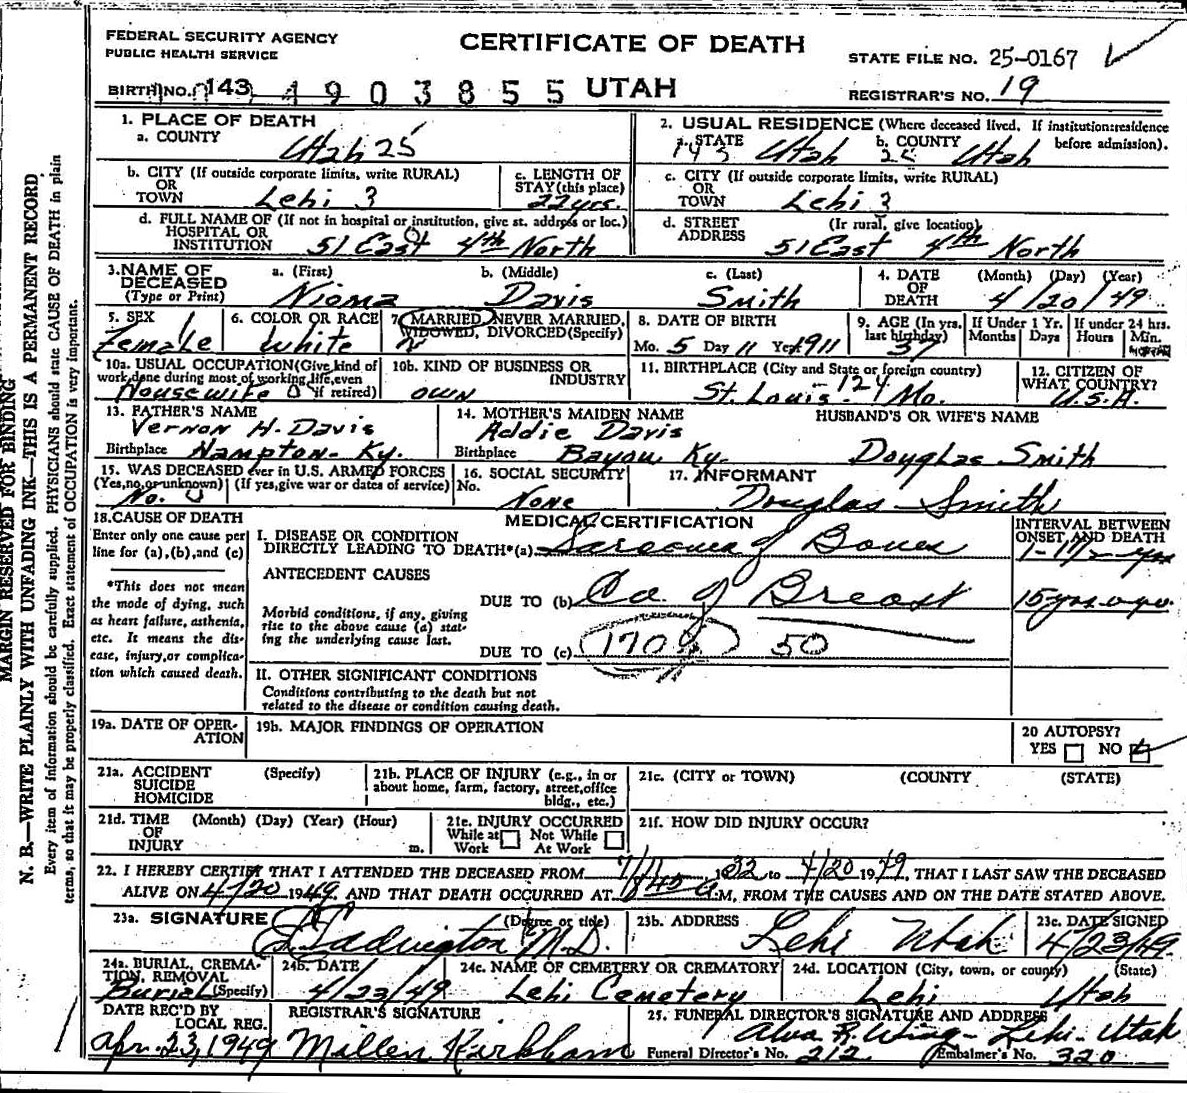 FEDERAL SECURITY AGENCY
PUBLIC HEALTH SERVICE
CERTIFICATE OF DEATH
STATE FILE NO. 25-0167
BIRTH NO. 143 4903855 UTAH
REGISTRAR'S NO. 19
1. PLACE OF DEATH
a. COUNTY Utah 25
2. USUAL RESIDENCE (Where deceased lived. If institution:residence before admission).
a. STATE 143 Utah b. COUNTY 25 Utah
b. CITY (If outside corporate limits, write RURAL) OR TOWN Lehi 3
c. LENGTH OF STAY (this place) 22 yrs.
c. CITY (If outside corporate limits, write RURAL) OR TOWN Lehi 3
d. FULL NAME OF (If not in hospital or institution, give st. address or loc.) HOSPITAL OR INSTITUTION 51 East 4th North
d. STREET ADDRESS (Ir rural, give location) 51 East 4th North
3. NAME OF DECEASED (Type or Print)
a. (First) Nioma
b. (Middle) Davis
c. (Last) Smith
4. DATE OF DEATH (Month) (Day) (Year) 4/20/49
5. SEX Female
6. COLOR OR RACE White
7. MARRIED, NEVER MARRIED, WIDOWED, DIVORCED (Specify)
8. DATE OF BIRTH Mo. 5 Day 11 Year 1911
9. AGE (In yrs. last birthday) 37
If Under 1 Yr. Months Days
If under 24 hrs. Hours Min.
10a. USUAL OCCUPATION (Give kind of work done during most of working life, even if retired) Housewife
10b. KIND OF BUSINESS OR INDUSTRY own
11. BIRTHPLACE (City and State or foreign country) St. Louis - 124 Mo.
12. CITIZEN OF WHAT COUNTRY? U.S.A.
13. FATHER'S NAME Vernon H. Davis
Birthplace Hampton - Ky.
14. MOTHER'S MAIDEN NAME Addie Davis
Birthplace Bayou Ky.
HUSBAND'S OR WIFE'S NAME Douglas Smith
15. WAS DECEASED ever in U.S. ARMED FORCES (Yes, no, or unknown) (If yes, give war or dates of service) No.
16. SOCIAL SECURITY No. None
17. INFORMANT Douglas Smith
18. CAUSE OF DEATH
Enter only one cause per line for (a), (b), and (c)
*This does not mean the mode of dying, such as heart failure, asthenia, etc. It means the disease, injury, or complication which caused death.
MEDICAL CERTIFICATION
INTERVAL BETWEEN ONSET, AND DEATH
I. DISEASE OR CONDITION DIRECTLY LEADING TO DEATH*(a) Sarcoma of Bones 1-1 1/2 yrs
ANTECEDENT CAUSES
Morbid conditions, if any, giving rise to the above cause (a) stating the underlying cause last.
DUE TO (b) Ca of Breast 15 yrs ago.
DUE TO (c) 170 50
II. OTHER SIGNIFICANT CONDITIONS
Conditions contributing to the death but not related to the disease or condition causing death.
19a. DATE OF OPERATION
19b. MAJOR FINDINGS OF OPERATION
20 AUTOPSY? YES NO
21a. ACCIDENT SUICIDE HOMICIDE (Specify)
21b. PLACE OF INJURY (e.g., in or about home, farm, factory, street, office bldg., etc.)
21c. (CITY OR TOWN) (COUNTY (STATE)
21d. TIME OF INJURY (Month) (Day) (Year) (Hour) m.
21e. INJURY OCCURRED While at Work Not While At Work
21f. HOW DID INJURY OCCUR?
22. I HEREBY CERTIFY THAT I ATTENDED THE DECEASED FROM 7/11 1932 to 4/20 1949, THAT I LAST SAW THE DECEASED
ALIVE ON 4/20 1949, AND THAT DEATH OCCURRED AT 845 a M, FROM THE CAUSES AND ON THE DATE STATED ABOVE.
23a. SIGNATURE (Degree or title) Eddington M.D.
23b. ADDRESS Lehi Utah
23c. DATE SIGNED 4/23/49.
24a. BURIAL, CREMATION, REMOVAL (Specify) Burial
24b. DATE 4/23/49
24c. NAME OF CEMETERY OR CREMATORY Lehi Cemetery
24d. LOCATION (City, town, or county) (State) Lehi Utah
DATE REC'D BY LOCAL REG. Apr. 23, 1949
REGISTRAR'S SIGNATURE Millen Kirkham
25. FUNERAL DIRECTOR'S SIGNATURE AND ADDRESS Alva R. Wing - Lehi - Utah
Funeral Director's No. 212 Embalmer's No. 320
MARGIN RESERVED FOR BINDING
N. B.—WRITE PLAINLY WITH UNFADING INK—THIS IS A PERMANENT RECORD
Every item of information should be carefully supplied. PHYSICIANS should state CAUSE OF DEATH in plain
terms, so that it may be properly classified. Exact statement of OCCUPATION is very important.